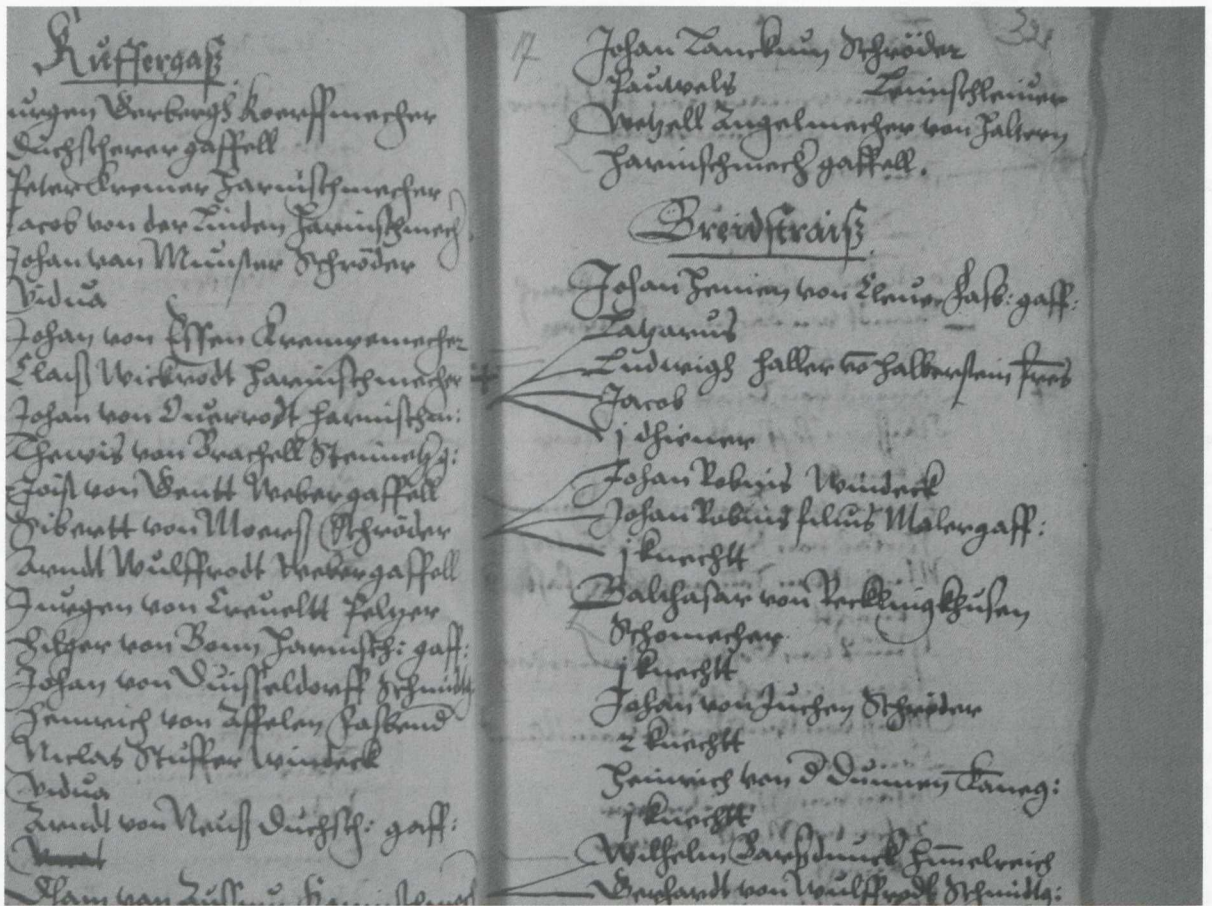 Ruffergaß
urgen Verbergh Koerffmecher
Duchscherer gaffell
Peter Kremer Harnischmecher
Jacob von der Linden Harnischmech
Johan van Munster Schröder
Vidua
Johan von Essen
Claiß Wickrodt Harnischmecher
Johan von Overrodt harnischm:
Thewis von Brachell Steinmetzg:
Joist von Gentt Webergaffell
Sibertt von Moerß Schröder
Arndt Wulffrodt Webergaffell
Jurgen von Creveltt Peltzer
Hilger von Bonn Harnisch: gaff:
Johan von Duisseldorff Schmidtz
Heinrich von Affelen Fasbend
Niclas Stuffer Windeck
Vidua
Arndt von Neuß Duchsch: gaff:
17
Johan Schröder
Pauwels
Wetzell Angelmecher von Haltern
Harnischmech gaffell.
Breidstraiß
Johan von Cleve Fasb: gaff:
Lazarus
Ludwigh Haller vo Halberstein fres
Jacob
j dhiener
Johan Robins Windeck
Johan Robins filius Malergaff:
j knechtt
Balthasar von Recklingkhusen
Schomecher
j knechtt
Johan von Juchen Schröder
2 knechtt
Heinrich von d Dunnen Kaneg:
j knechtt
Wilhelm Himmelreich
Gerhardt von Wulffrodt Schmidtg: